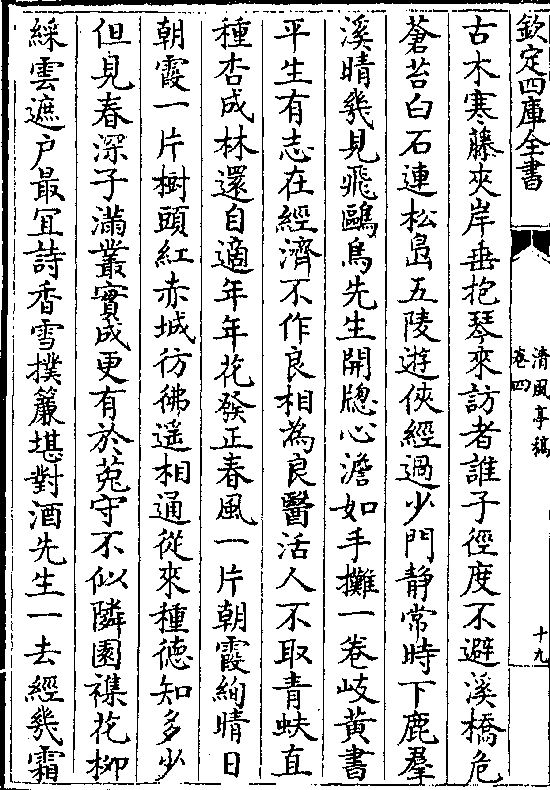 欽定四庫全書
清風亭稿
卷四
十九
古木寒藤夾岸垂抱琴來訪者誰子徑度不避溪橋危
蒼苔白石連松島五陵遊俠經過少門静常時下鹿羣
溪晴幾見飛鷗鳥先生開牕心澹如手攤一卷岐黄書
平生有志在經濟不作良相為良醫活人不取青蚨直
種杏成林還自適年年花發正春風一片朝霞絢晴日
朝霞一片樹頭紅赤城彷彿遥相通從來種德知多少
但見春深子滿叢實成更有於菟守不似隣園襍花柳
綵雲遮户最冝詩香雪撲簾堪對酒先生一去經幾霜